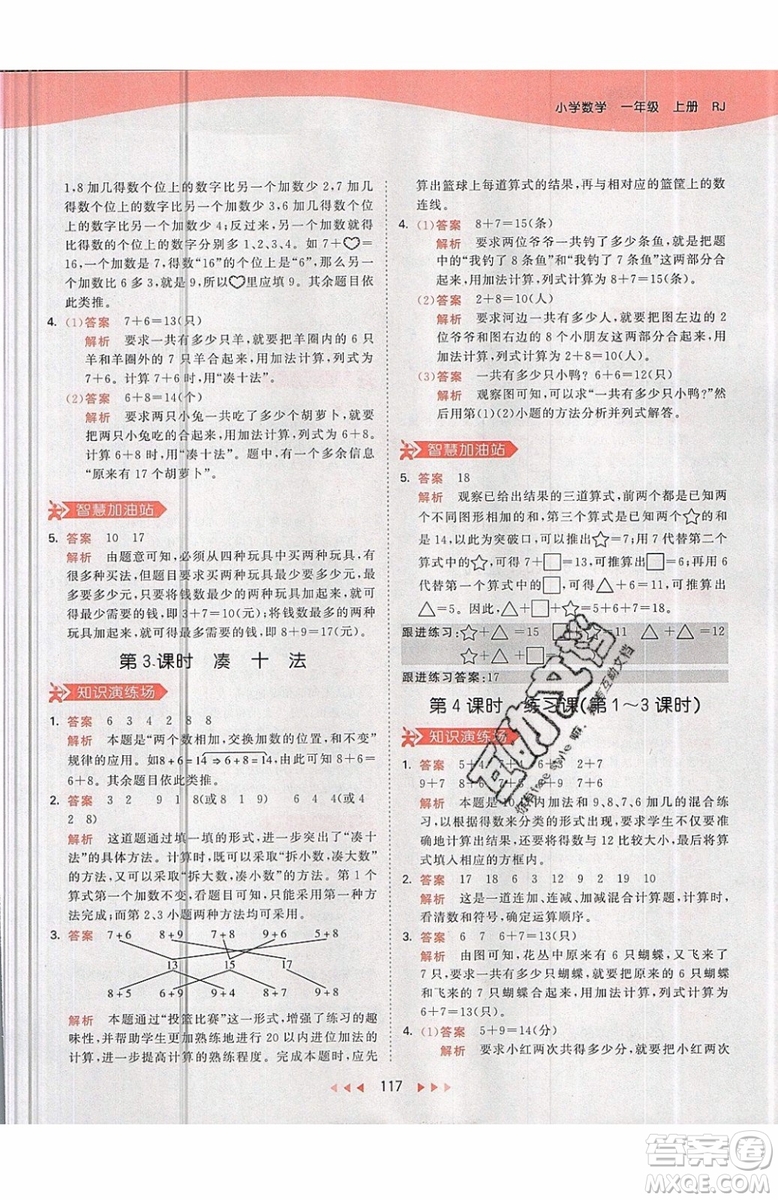 小学数学 一年级 上册 RJ
1,8加几得数个位上的数字比另一个加数少2,7加几
得数个位上的数字比另一个加数少3,6加几得数个
位上的数字比另一个加数少4;反过来,另一个加数就
比得数个位上的数字分别多1、2、3、4。如7+♡=
16,一个加数是7,得数“16”的个位上是“6”,那么另一
个加数比6多3,就是9,所以♡里应填9。其余题目依
此类推。
4. (1)答案 7+6=13(只)
解析 要求一共有多少只羊,就要把羊圈内的6只
羊和羊圈外的7只羊合起来,用加法计算,列式为
7+6。计算7+6时,用“凑十法”。
(2)答案 6+8=14(个)
解析 要求两只小兔一共吃了多少个胡萝卜,就要
把两只小兔吃的合起来,用加法计算,列式为6+8。
计算6+8时,采用“凑十法”。本题中有一个多余信息
“原来有17个胡萝卜”。
智慧加油站
5. 答案 10 17
解析 由题意可知,必须从四种玩具中买两种玩具,有
很多种买法,但是题目要求最少需要多少元钱和最多
需要多少元钱,所以将钱数最少的两种玩具合起来,就
可得最少需要的钱,即6+4=10(元);将钱数最多的两种
玩具合起来,就可得最多需要的钱,即8+9=17(元)。
第3课时 凑十法
知识演练场
1. 答案 6 3 4 2 8 8
解析 本题是“两个数相加,交换加数的位置,和不变”
规律的应用。如8+6=14,所以6+8=14,其余同理。
2. 答案 3 2 9 1 8(或8 1 9) 1 6 4(或4
2 8)
解析 这道题通过填一填的形式,进一步训练“凑十
法”的具体方法。计算时,既可以采取“拆小数,凑大数”
的方法,又可以采取“拆大数,凑小数”的方法。第1个
算式第一个加数不变,是10,就只能采用第一种拆分
方法完成;而第2、3小题两种方法均可采用。
3. 答案 7+6 8+9 9+6 6+9 5+8
13 15 17
8+5 6+9 4+9 9+8 8+7
解析 本题通过“投篮比赛”这一形式,增强了练习的趣
味性,并帮助学生更加熟练地进行20以内进位加法的
计算,进一步提高计算的熟练程度。完成本题时,应先
算出篮球上每道算式的结果,再与相对应的篮筐上的数
连线。
4. (1)答案 8+7=15(条)
解析 要求两位爷爷一共钓了多少条鱼,就要把题
中的“我钓了8条鱼”和“我钓了7条鱼”这两部分合
起来,用加法计算,列式计算为8+7=15(条)。
(2)答案 2+8=10(人)
解析 要求河边一共有多少人,就要把图左边的2
位爷爷和右边的8个小朋友合起来,用加法计算,列
式计算为2+8=10(人)。
(3)答案 一共有多少只小鸭? 6+6=12(只)
解析 观察图可知,可以求“一共有多少只小鸭?”然
后用第(1)(2)小题的方法分析并列式解答。
智慧加油站
5. 答案 18
解析 观察已给出结果的三道算式,发现第一个算式
中两个加数是相同的,和是14,第三个算式中☆代表的
是14,以此来突破口,可求出☆=7;用7代替第二个
算式中的☆,可知7+□=13,可推算出□=6;用6代替
第三个算式中的□,可知△+6=11,可推算出
△=5。因此,△+□+☆=5+6+7=18。
跟进练习答案:17
第4课时 练习课(第1~3课时)
知识演练场
1. 答案 5+7
解析 本题是10以内加法和9、8、7、6加几的混合练
习,要求根据得数来分类的形式出示加法,要先准
确地计算出结果,再将得数与12比较大小,最后将算
式填入相应的方框内。
2. 答案 17 18 6 3 12 9 19 10
解析 这是一道连加、连减、加减混合计算题,计算时要
看清数和符号,确定运算顺序。
3. 答案 6 7 6+7=13(只)
解析 由图可知,花丛中原来有6只蝴蝶,又飞来了
7只,要求现在一共有多少只蝴蝶,就要把原来的蝴蝶
只数和又飞来的蝴蝶只数合起来,用加法计算,列式计
算为6+7=13(只)。
4. (1)答案 5+9=14(分)
解析 要求小红两次一共得多少分,就要把小红两次
117